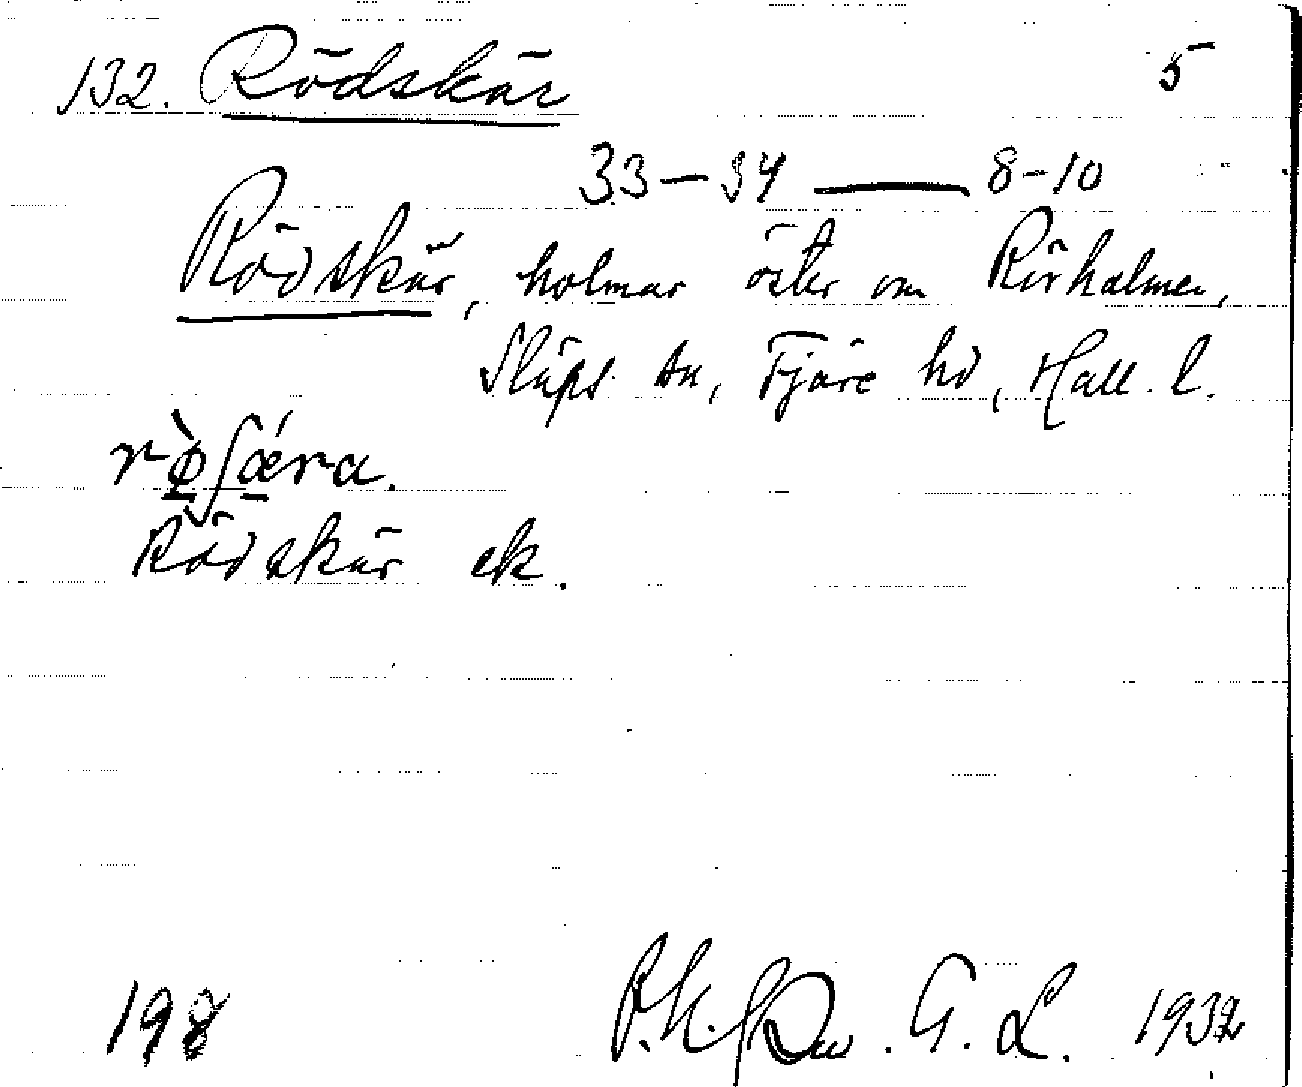 132. Rödskär 5
33-34 — 8-10
Rödskär, holmar öster om Rörholmen,
Släps sn, Fjäre hd, Hall. l.
rø̀ʃǽra.
Rödskär ek.
198 G. L. 1932